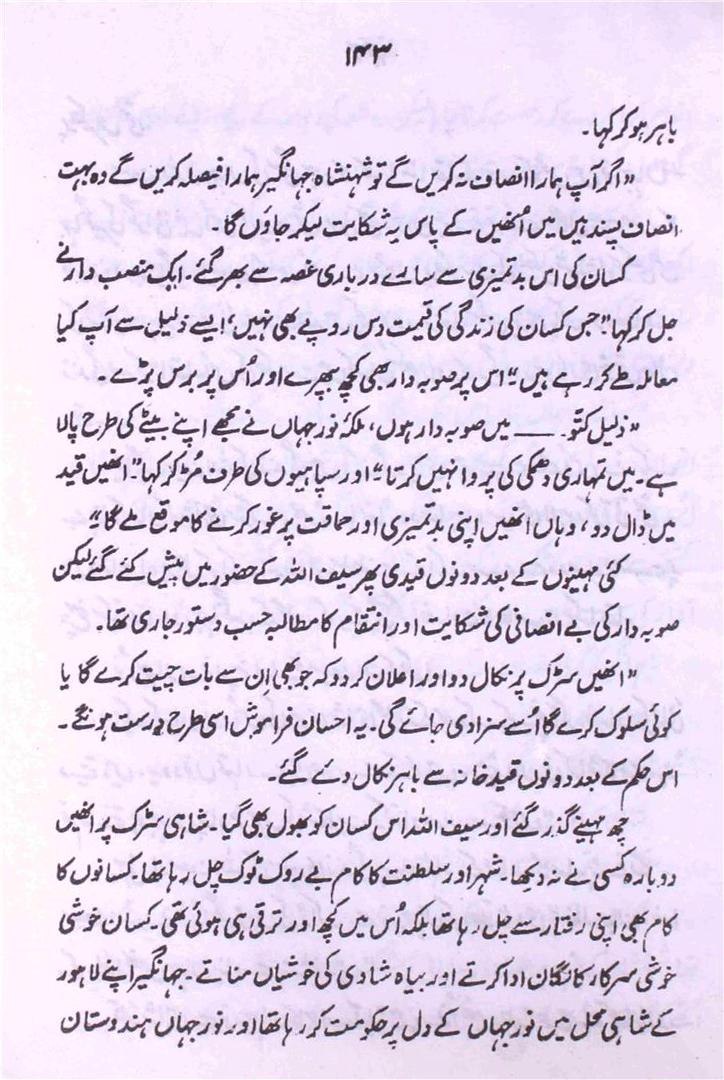 ۱۴۳
باہر ہو کر کہا۔
"اگر آپ ہمارا انصاف نہ کریں گے تو شہنشاہ جہانگیر ہمارا فیصلہ کریں گے وہ بہت
انصاف پسند ہیں میں اُنھیں کے پاس یہ شکایت لیکر جاؤں گا۔
کسان کی اس بدتمیزی سے سارے درباری غصہ سے بھر گئے۔ ایک منصب دار نے
جل کر کہا "جس کسان کی زندگی کی قیمت دس روپے بھی نہیں، ایسے ذلیل سے آپ کیا
معاملہ طے کر رہے ہیں" اس پر صوبہ دار بھی کچھ بپھرے اور اُس پر برس پڑے۔
"ذلیل کتّو ــــــ میں صوبہ دار ہوں، ملکۂ نور جہاں نے مجھے اپنے بیٹے کی طرح پالا
ہے۔ میں تمہاری دھمکی کی پروا نہیں کرتا" اور سپاہیوں کی طرف مُڑ کر کہا "انھیں قید
میں ڈال دو، وہاں انھیں اپنی بدتمیزی اور حماقت پر غور کرنے کا موقع ملے گا"
کئی مہینوں کے بعد دونوں قیدی پھر سیف اللہ کے حضور میں پیش کئے گئے لیکن
صوبہ دار کی بے انصافی کی شکایت اور انتقام کا مطالبہ حسب دستور جاری تھا۔
"انھیں سڑک پر نکال دو اور اعلان کر دو کہ جو بھی ان سے بات چیت کرے گا یا
کوئی سلوک کرے گا اُسے سزا دی جائے گی۔ یہ احسان فراموش اسی طرح درست ہونگے۔
اس حکم کے بعد دونوں قید خانہ سے باہر نکال دئے گئے۔
چھ مہینے گذر گئے اور سیف اللہ اس کسان کو بھول بھی گیا۔ شاہی سڑک پر انھیں
دوبارہ کسی نے نہ دیکھا۔ شہر اور سلطنت کا کام بے روک ٹوک چل رہا تھا۔ کسانوں کا
کام بھی اپنی رفتار سے چل رہا تھا بلکہ اُس میں کچھ اور ترقی ہی ہوئی تھی۔ کسان خوشی
خوشی سرکار کا لگان ادا کرتے اور بیاہ شادی کی خوشیاں مناتے۔ جہانگیر اپنے لاہور
کے شاہی محل میں نور جہاں کے دل پر حکومت کر رہا تھا اور نور جہاں ہندوستان